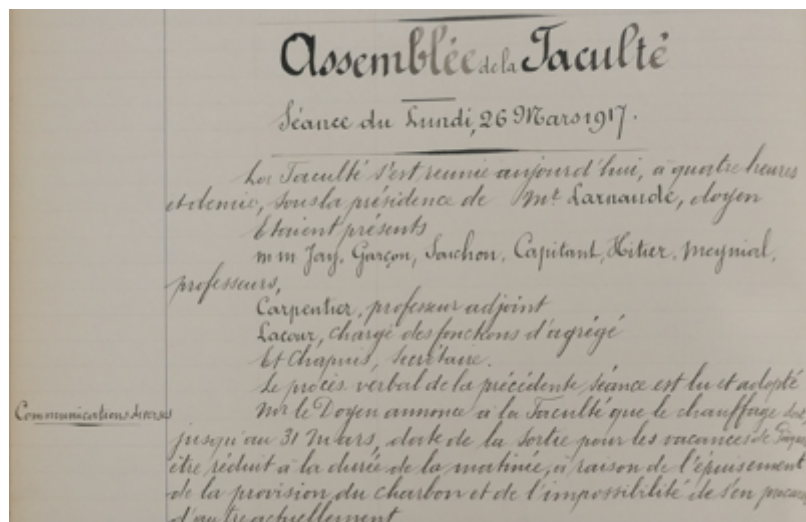 Assemblée de la Faculté
Séance du Lundi, 26 Mars 1917.
La Faculté s'est reunie aujourd'hui, à quatre heures
et demie, sous la présidence de Mr Larnaude, doyen
Etaient présents
mm Jay, Garçon, Souchon, Capitant, Hitier, Meynial,
professeurs,
Carpentier, professeur adjoint
Lacour, chargé des fonctions d'agrégé
Et Chapuis, secrétaire.
Le procès verbal de la précédente séance est lu et adopté
Communications diverses
Mr le Doyen annonce à la Faculté que le chauffage doit,
jusqu'au 31 Mars, date de la sortie pour les vacances de Pâques
être réduit à la durée de la matinée, à raison de l'épuisement
de la provision du charbon et de l'impossibilité de s'en procurer
d'autre actuellement